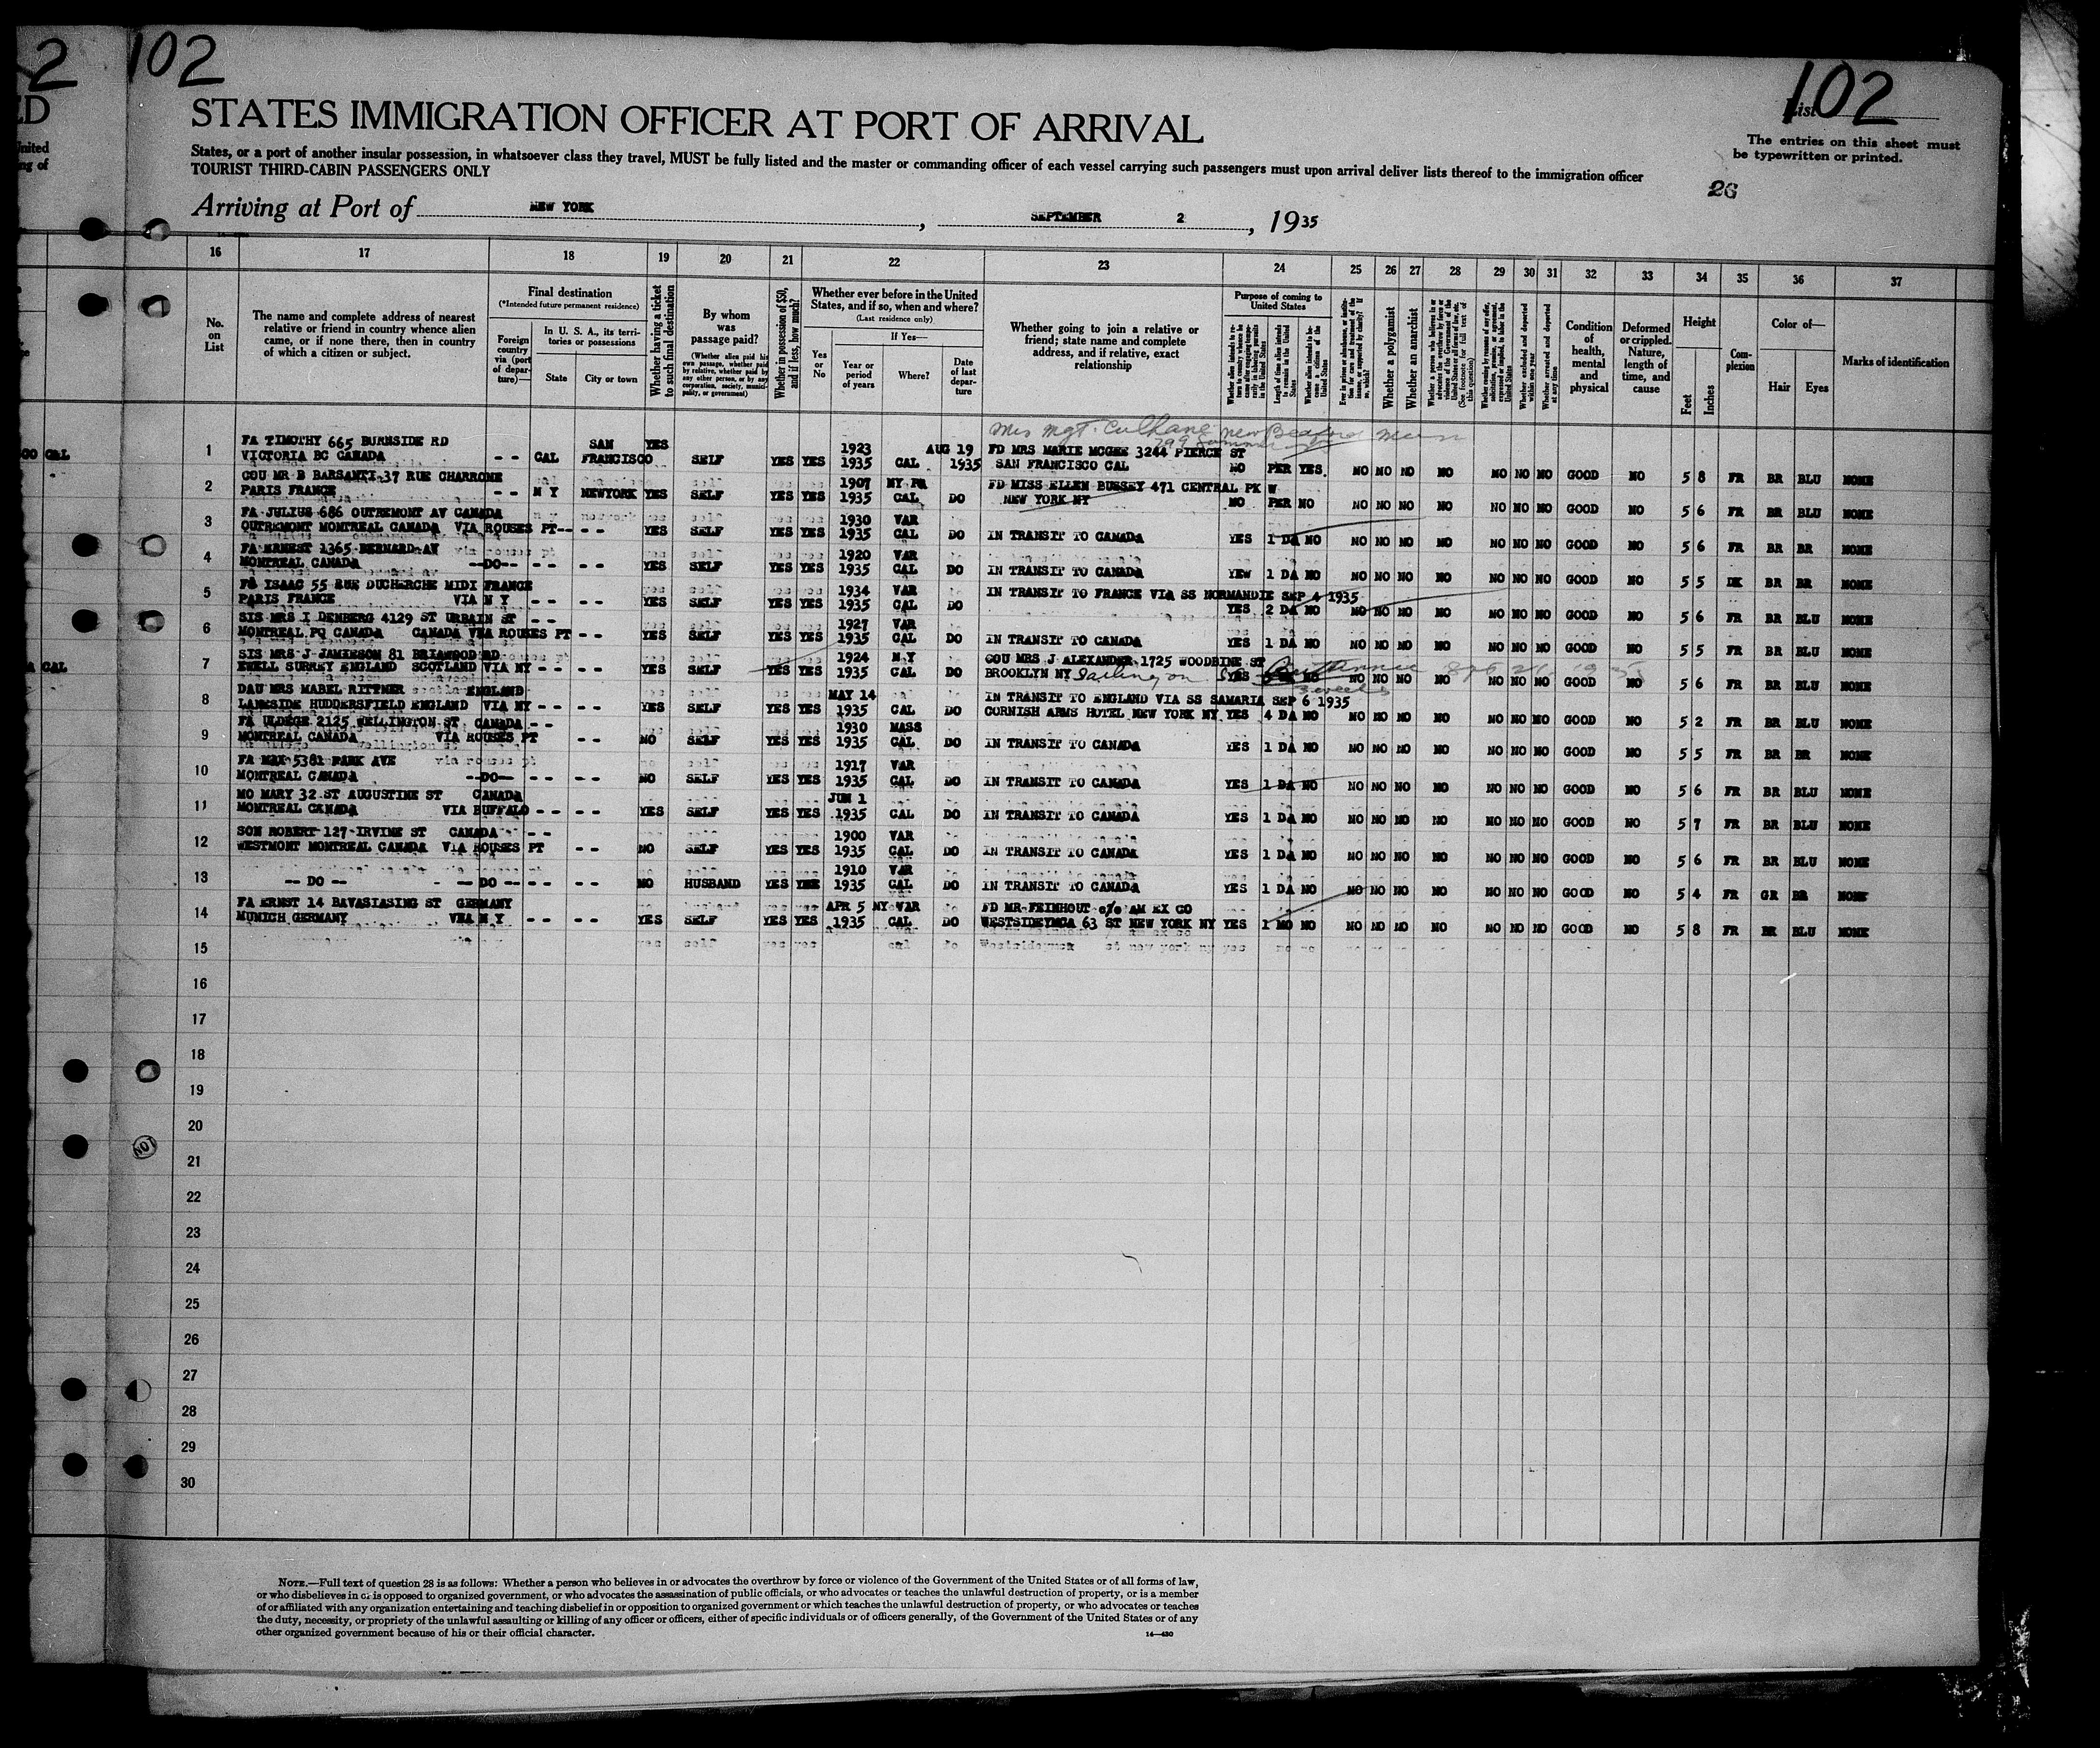 2 102
102
LD
STATES IMMIGRATION OFFICER AT PORT OF ARRIVAL
List
The entries on this sheet must
be typewritten or printed.
States, or a port of another insular possession, in whatsoever class they travel, MUST be fully listed and the master or commanding officer of each vessel carrying such passengers must upon arrival deliver lists thereof to the immigration officer
TOURIST THIRD-CABIN PASSENGERS ONLY
26
Arriving at Port of NEW YORK, SEPTEMBER 2, 1935
16 17 18 19 20 21 22 23 24 25 26 27 28 29 30 31 32 33 34 35 36 37
No. on List
The name and complete address of nearest relative or friend in country whence alien came, or if none there, then in country of which a citizen or subject.
Final destination
(*Intended future permanent residence)
Foreign country via (port of departure)—
In U. S. A., its territories or possessions
State
City or town
Whether having a ticket to such final destination
By whom was passage paid?
(Whether alien paid his own passage, whether paid by relative, whether paid by any other person, or by any corporation, society, municipality, or government)
Whether in possession of $50, and if less, how much?
Whether ever before in the United States, and if so, when and where?
(Last residence only)
Yes or No
If Yes—
Year or period of years
Where?
Date of last departure
Whether going to join a relative or friend; state name and complete address, and if relative, exact relationship
Purpose of coming to United States
Length of time alien intends to remain in the United States
Whether alien intends to become a citizen of the United States
Whether a polygamist
Whether an anarchist
Condition of health, mental and physical
Deformed or crippled. Nature, length of time, and cause
Height
Feet
Inches
Complexion
Color of—
Hair
Eyes
Marks of identification
Mrs Mgt. Culhane New Bedford Mass
1 FA TIMOTHY 665 BURNSIDE RD SAN YES 1923 AUG 19 FD MRS MARIE MCGEE 3244 PIERCE ST
VICTORIA BC CANADA - - CAL FRANCISCO SELF YES YES 1935 CAL 1935 SAN FRANCISCO CAL NO PER YES NO NO NO NO NO NO NO GOOD NO 5 8 FR BR BLU NONE
2 COU MR B BARSANTI 37 RUE CHARRONE 1907 NY FD MISS ELLEN BUSSEY 471 CENTRAL PK W
PARIS FRANCE - - N Y NEWYORK YES SELF YES YES 1935 CAL DO NEW YORK NY NO PER NO NO NO NO NO NO NO NO GOOD NO 5 6 FR BR BLU NONE
3 FA JULIUS 686 OUTREMONT AV CANADA 1930 VAR
OUTREMONT MONTREAL CANADA VIA ROUSES PT-- YES SELF YES YES 1935 CAL DO IN TRANSIT TO CANADA YES 1 DA NO NO NO NO NO NO NO NO GOOD NO 5 6 FR BR BR NONE
4 FA ERNEST 1365 BERNARD AV 1920 VAR
MONTREAL CANADA --DO-- - - - - YES SELF YES YES 1935 CAL DO IN TRANSIT TO CANADA YEW 1 DA NO NO NO NO NO NO NO NO GOOD NO 5 5 DK BR BR NONE
5 FA ISAAC 55 RUE DUCHERCHE MIDI FRANCE 1934 VAR IN TRANSIT TO FRANCE VIA SS NORMANDIE SEP 4 1935
PARIS FRANCE VIA N Y - - - - YES SELF YES YES 1935 CAL DO YES 2 DA NO NO NO NO NO NO NO NO GOOD NO 5 6 FR BR BLU NONE
6 SIS MRS I DENBERG 4129 ST URBAIN ST - - 1927 VAR
MONTREAL PQ CANADA CANADA VIA ROUSES PT - - YES SELF YES YES 1935 CAL DO IN TRANSIT TO CANADA YES 1 DA NO NO NO NO NO NO NO NO GOOD NO 5 5 FR BR BLU NONE
7 SIS MRS J JAMIESON 81 BRIAWOOD RD 1924 N Y COU MRS J ALEXANDER 1725 WOODBINE ST
EWELL SURREY ENGLAND SCOTLAND VIA NY - - - - YES SELF YES YES 1935 CAL DO BROOKLYN NY Sailing on Britannic YES NO NO NO NO NO NO NO NO GOOD NO 5 6 FR BR BLU NONE
3 weeks
8 DAU MRS MABEL RITTNER ENGLAND MAY 14 IN TRANSIT TO ENGLAND VIA SS SAMARIA SEP 6 1935
LANESIDE HUDDERSFIELD ENGLAND VIA NY - - - - YES SELF YES YES 1935 CAL DO CORNISH ARMS HOTEL NEW YORK NY YES 4 DA NO NO NO NO NO NO NO NO GOOD NO 5 2 FR BR BLU NONE
9 FA ULDEGE 2125 WELLINGTON ST CANADA - - 1930 MASS
MONTREAL CANADA VIA ROUSES PT - - NO SELF YES YES 1935 CAL DO IN TRANSIT TO CANADA YES 1 DA NO NO NO NO NO NO NO NO GOOD NO 5 5 FR BR BR NONE
10 FA MAX 5381 PARK AVE 1917 VAR
MONTREAL CANADA --DO-- - - - - NO SELF YES YES 1935 CAL DO IN TRANSIT TO CANADA YES 1 DA NO NO NO NO NO NO NO NO GOOD NO 5 6 FR BR BLU NONE
11 MO MARY 32 ST AUGUSTINE ST CANADA JUN 1
MONTREAL CANADA VIA BUFFALO - - - - YES SELF YES YES 1935 CAL DO IN TRANSIT TO CANADA YES 1 DA NO NO NO NO NO NO NO NO GOOD NO 5 7 FR BR BLU NONE
12 SON ROBERT 127 IRVINE ST CANADA - - 1900 VAR
WESTMONT MONTREAL CANADA VIA ROUSES PT - - NO SELF YES YES 1935 CAL DO IN TRANSIT TO CANADA YES 1 DA NO NO NO NO NO NO NO NO GOOD NO 5 6 FR BR BLU NONE
13 1910 VAR
-- DO -- -- DO -- - - - NO HUSBAND YES YES 1935 CAL DO IN TRANSIT TO CANADA YES 1 DA NO NO NO NO NO NO NO NO GOOD NO 5 4 FR GR BR NONE
14 FA ERNST 14 BAVASIASING ST GERMANY APR 5 NY VAR FD MR FEINHOUT c/o AM EX CO
MUNICH GERMANY VIA N Y - - - - YES SELF YES YES 1935 CAL DO WESTSIDEYMCA 63 ST NEW YORK NY YES 1 MO NO NO NO NO NO NO NO NO GOOD NO 5 8 FR BR BLU NONE
15
16
17
18
19
20
21
22
23
24
25
26
27
28
29
30
NOTE.—Full text of question 28 is as follows: Whether a person who believes in or advocates the overthrow by force or violence of the Government of the United States or of all forms of law,
or who disbelieves in or is opposed to organized government, or who advocates the assassination of public officials, or who advocates or teaches the unlawful destruction of property, or is a member
of or affiliated with any organization entertaining and teaching disbelief in or opposition to organized government or which teaches the unlawful destruction of property, or who advocates or teaches
the duty, necessity, or propriety of the unlawful assaulting or killing of any officer or officers, either of specific individuals or of officers generally, of the Government of the United States or of any
other organized government because of his or their official character.
14—430